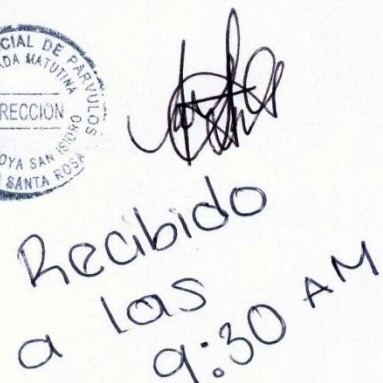 CIAL DE PARVULOS
ADA MATUTINA
RECCIÓN
OYA SAN ISIDRO
SANTA ROSA
Recibido
a las
9:30 AM